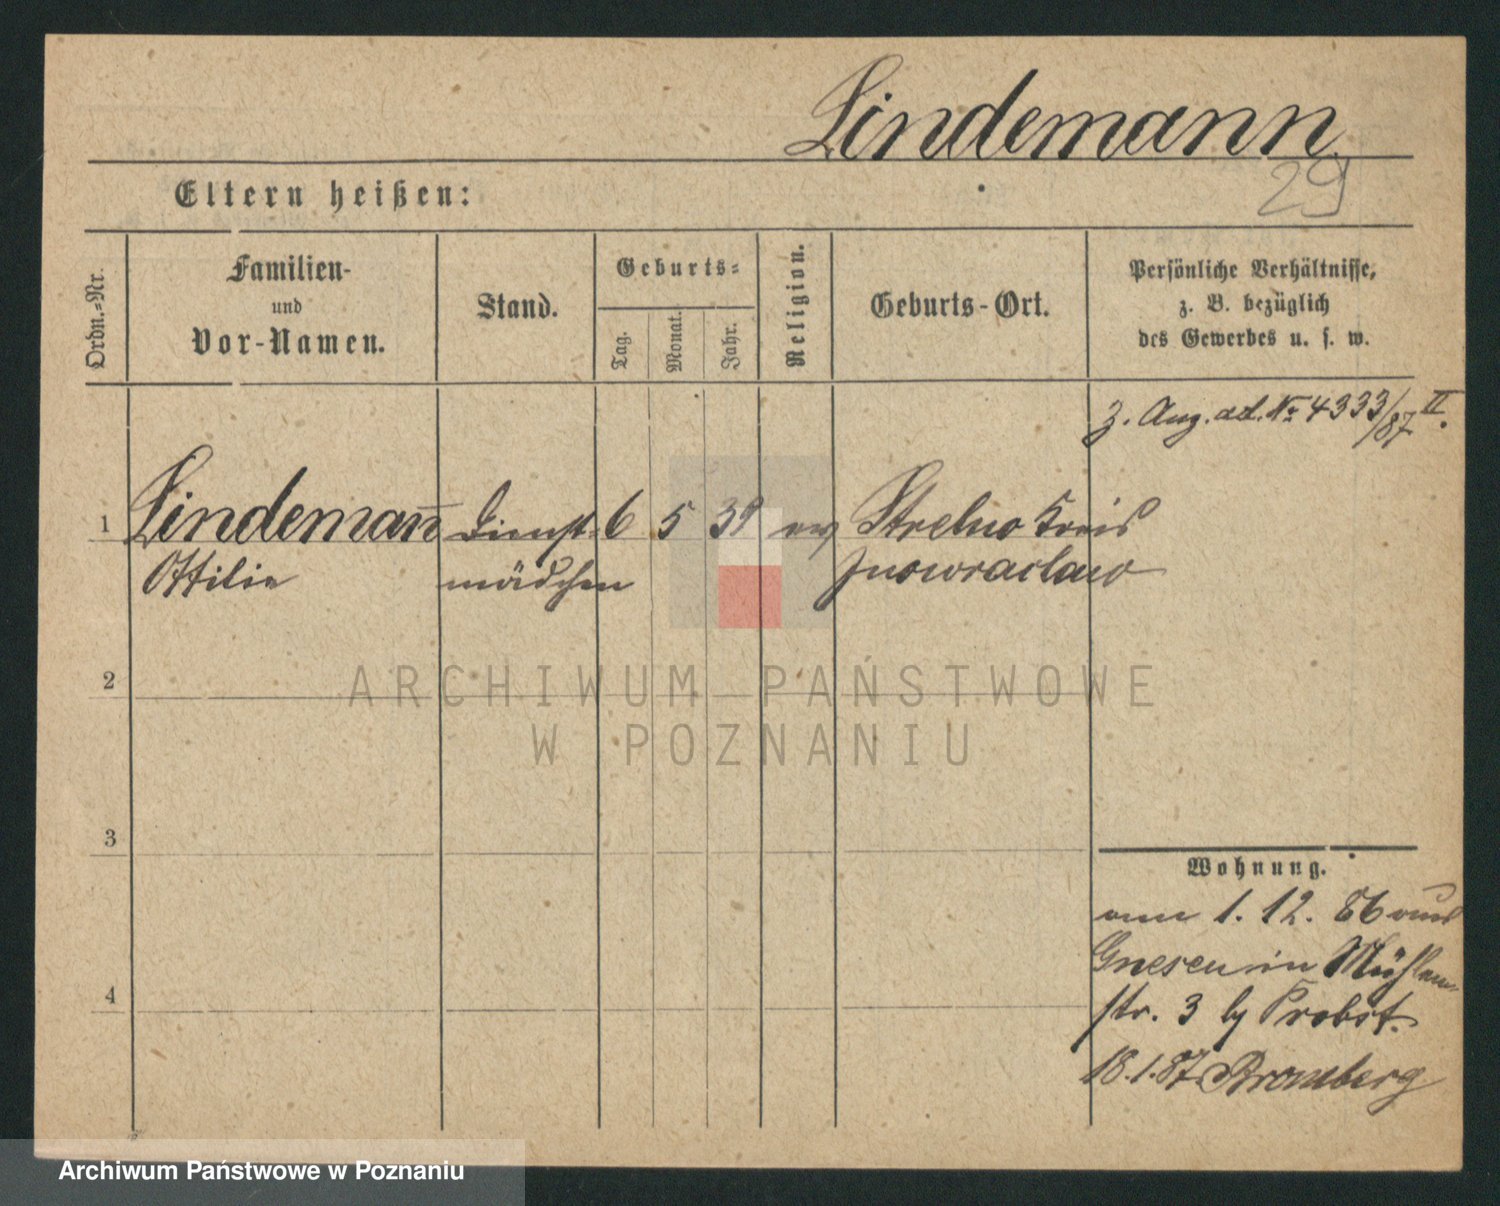 Lindemann
29
Eltern heißen:
Ordn.-Nr.
Familien-
und
Vor-Namen.
Stand.
Geburts-
Tag.
Monat.
Jahr.
Religion.
Geburts-Ort.
Persönliche Verhältnisse,
z. B. bezüglich
des Gewerbes u. s. w.
z. Ang. ad. No 4333/87 II.
1 Lindemann̄ Dienst- 6 5 39 ev Strelno Kreis
Ottilie mädchen Inowraclaw
2
ARCHIWUM PAŃSTWOWE
W POZNANIU
3
Wohnung.
am 1. 12. 86 aus
Gnesen in Mühlen-
4
str. 3 by Probst.
18.1.87 Bromberg
Archiwum Państwowe w Poznaniu